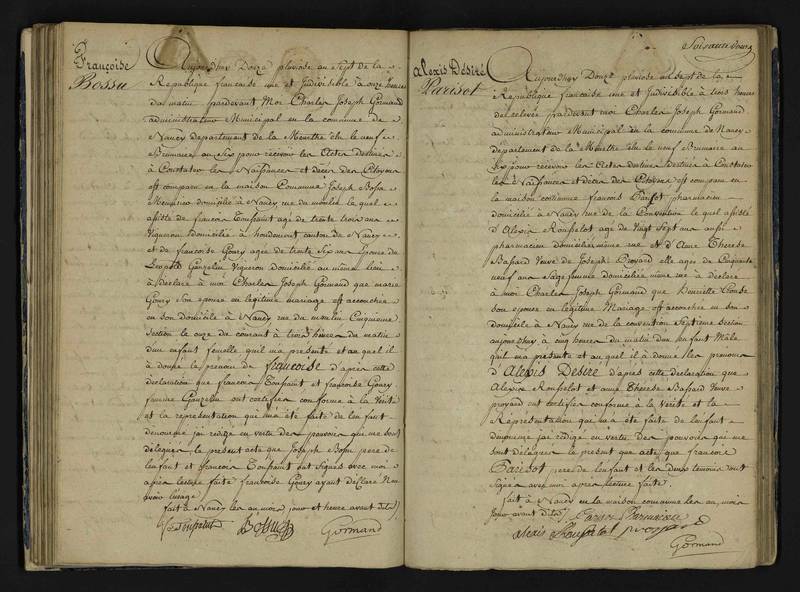 Françoise
Bossu
Aujourdhuy Douze pluviose au Sept de la
Republique francaise une et Judivisible à onze heures
du matin pardevant Moi Charles Joseph Gormand
administrateur Municipal en la commune de
Nancy departement de la Meurthe élu le neuf
Brumaire an Six pour recevoir les Actes Destinés
à Constater les Naissances et décès des Citoyens
est comparu en la maison Commune Joseph Bossu
Menuisier domicilié à Nancy rue du moulin le quel
assisté de francois Toussaint agé de trente trois ans
Vigneron Domicilié à houdemont canton de Nancy
et de francoise Goury agée de trente Six ans Epouse de
Leopold Vigneron Domicilié au même lieu
à déclaré à moi Charles Joseph Gormand que marie
Goury Son epouse en legitime mariage est accouchée
en son domicile à Nancy rue du moulin Cinquieme
Section le onze du courant à trois heures du matin
d'un enfant femelle quil ma presenté et au quel il
à donné le prenom de françoise d'après cette
déclaration que francois Toussaint et francoise Goury
femme ont certifiés conforme à la Vérité
et la représentation qui m'a été faite de lenfant
denommé jai redigé en vertu des pouvoirs qui me sont
délégués le present acte que Joseph Bossu pere de
lenfant et francois Toussaint ont signés avec moi
après lecture faite francoise Goury ayant déclaré Nen
avoir lusage
fait à Nancy les an mois jour et heure avant dits
Bossu
Gormand
Soixante
alexis Désiré
Parisot
Aujourdhuy Douze pluviose au sept de la
Republique francaise une et Indivisible à trois heures
de relevée pardevant moi Charles Joseph Gormand
administrateur Municipal de la commune de Nancy
département de la Meurthe élu le neuf Brumaire an
Six pour recevoir les Actes destinés à Constater
les Naissances et décès des Citoyens est comparu en
la maison commune francois Parisot pharmacien
domicilié à Nancy rue de la Convention le quel assisté
d'Alexis Rousselot age de Vingt Sept ans aussi
pharmacien domicilié même rue et d'Anne Therese
Bassard Veuve de Joseph agée de Cinquante
neuf ans Sage femme domiciliée même rue à déclaré
à moi Charles Joseph Gormand que Henriette
son epouse en légitime Mariage est accouchée en son
domicile à Nancy rue de la convention Septieme Section
aujourdhuy à cinq heures du matin d'un enfant Mâle
quil ma présenté et au quel il à donné les prenoms
d'Alexis Désiré d'après cette déclaration que
Alexis Rousselot et anne Therese Bassard Veuve
ont certifiés conforme à la Vérité et la
Représentation qui m'a été faite de lenfant
denommé jai redigé en vertu des pouvoirs qui me
sont délégués le present acte que francois
Parisot pere de lenfant et les deux temoins ont
Signés avec moi après lecture faite.
fait à Nancy en la maison commune les an, mois
jour avant dits
Parisot Pharmacien
alexis Rousselot
Gormand